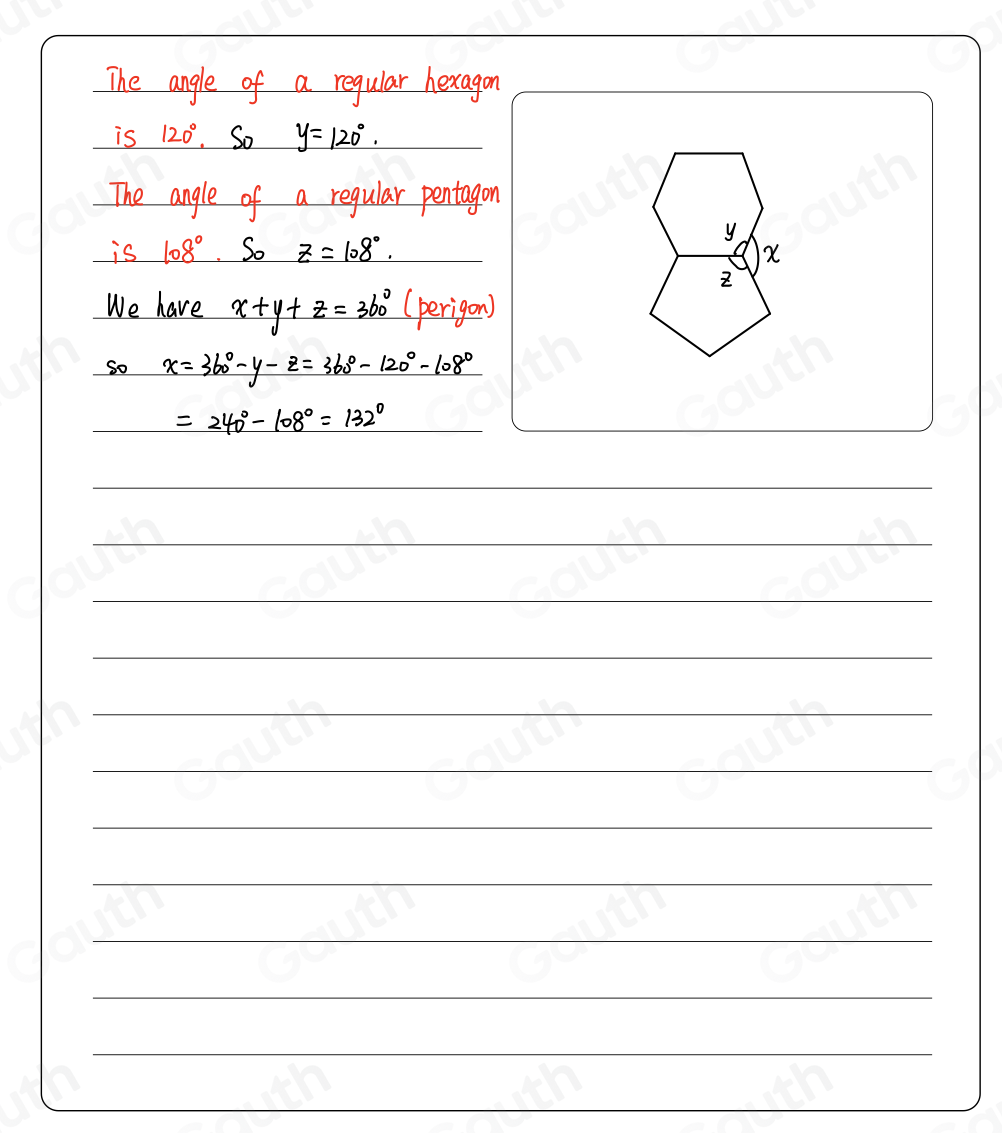 The angle of a regular hexagon
is 120°. So y=120°.
The angle of a regular pentagon
is 108°. So z=108°.
We have x+y+z=360° (perigon)
so x=360°-y-z=360°-120°-108°
=240°-108°=132°
y
x
z